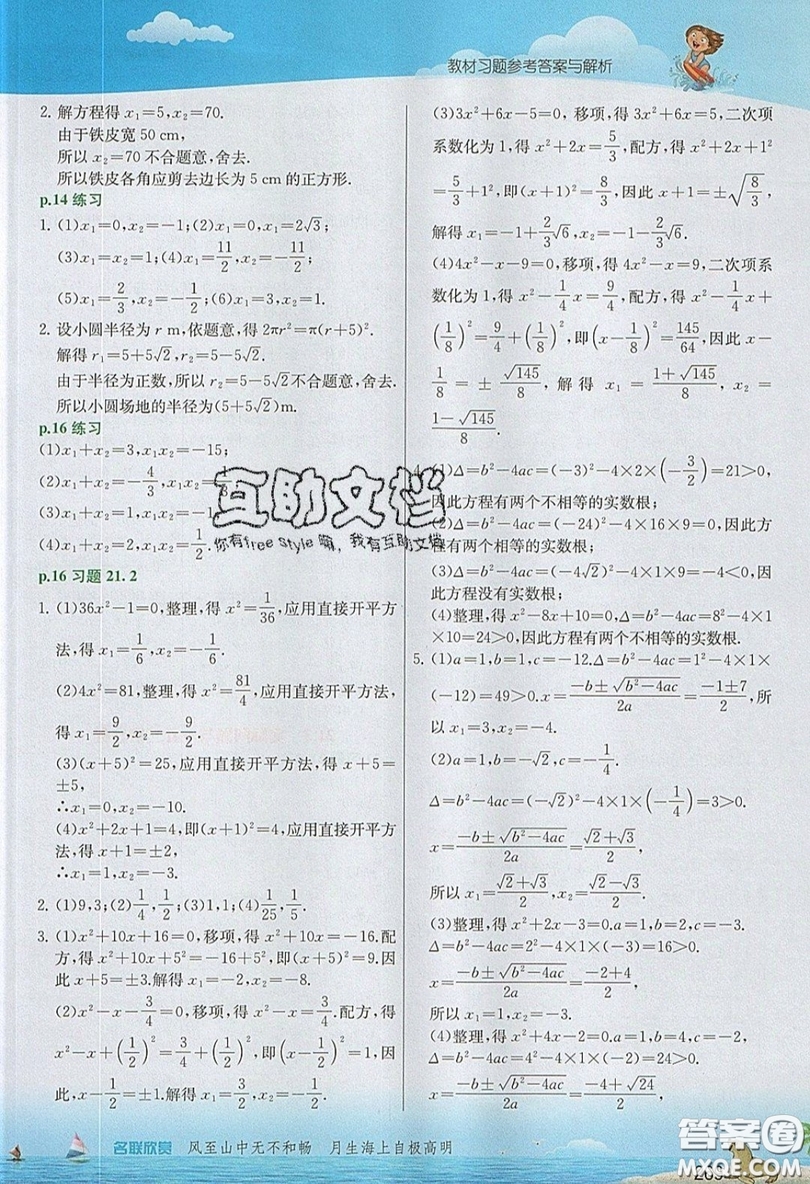 教材习题参考答案与解析
2. 解方程得 x₁=5, x₂=70.
由于铁皮宽 50 cm,
所以 x₂=70 不合题意,舍去.
所以铁皮各角应剪去边长为 5 cm 的正方形.
p.14 练习
1. (1)x₁=0,x₂=-1;(2)x₁=0,x₂=2√3;
(3)x₁=x₂=1;(4)x₁=11/2,x₂=-11/2;
(5)x₁=2/3,x₂=-1/2;(6)x₁=3,x₂=1.
2. 设小圆半径为 r m,依题意,得 2πr²=π(r+5)².
解得 r₁=5+5√2,r₂=5-5√2.
由于半径为正数,所以 r=5-5√2 不合题意,舍去.
所以小圆场地的半径为(5+5√2)m.
p.16 练习
(1)x₁+x₂=3,x₁x₂=-15;
(2)x₁+x₂=-4/3,x₁x₂=
(3)x₁+x₂=1,x₁x₂=-1
(4)x₁+x₂=2,x₁x₂=1/2.
p.16 习题 21.2
1. (1)36x²-1=0,整理,得 x²=1/36,应用直接开平方
法,得 x₁=1/6,x₂=-1/6.
(2)4x²=81,整理,得 x²=81/4,应用直接开平方法,
得 x₁=9/2,x₂=-9/2.
(3)(x+5)²=25,应用直接开平方法,得 x+5=
±5,
∴x₁=0,x₂=-10.
(4)x²+2x+1=4,即(x+1)²=4,应用直接开平方
法,得 x+1=±2,
∴x₁=1,x₂=-3.
2. (1)9,3;(2)1/4,1/2;(3)1,1;(4)1/25,1/5.
3. (1)x²+10x+16=0,移项,得 x²+10x=-16.配
方,得 x²+10x+5²=-16+5²,即(x+5)²=9.因
此 x+5=±3.解得 x₁=-2,x₂=-8.
(2)x²-x-3/4=0,移项,得 x²-x=3/4.配方,得
x²-x+(1/2)²=3/4+(1/2)²,即(x-1/2)²=1,因
此,x-1/2=±1.解得 x₁=3/2,x₂=-1/2.
(3)3x²+6x-5=0,移项,得 3x²+6x=5,二次项
系数化为 1,得 x²+2x=5/3,配方,得 x²+2x+1²
=5/3+1²,即(x+1)²=8/3,因此 x+1=±√(8/3),
解得 x₁=-1+2/3√6,x₂=-1-2/3√6.
(4)4x²-x-9=0,移项,得 4x²-x=9,二次项系
数化为 1,得 x²-1/4x=9/4,配方,得 x²-1/4x+
(1/8)²=9/4+(1/8)²,即(x-1/8)²=145/64,因此 x-
1/8=±√145/8,解得 x₁=(1+√145)/8,x₂=
(1-√145)/8.
4. (1)Δ=b²-4ac=(-3)²-4×2×(-3/2)=21>0,
因此方程有两个不相等的实数根;
(2)Δ=b²-4ac=(-24)²-4×16×9=0,因此方
程有两个相等的实数根;
(3)Δ=b²-4ac=(-4√2)²-4×1×9=-4<0,因
此方程没有实数根;
(4)整理,得 x²-8x+10=0,Δ=b²-4ac=8²-4×1
×10=24>0,因此方程有两个不相等的实数根.
5. (1)a=1,b=1,c=-12.Δ=b²-4ac=1²-4×1×
(-12)=49>0.x=(-b±√(b²-4ac))/2a=(-1±7)/2,所
以 x₁=3,x₂=-4.
(2)a=1,b=-√2,c=-1/4.
Δ=b²-4ac=(-√2)²-4×1×(-1/4)=3>0.
x=(-b±√(b²-4ac))/2a=(√2±√3)/2,
所以 x₁=(√2+√3)/2,x₂=(√2-√3)/2.
(3)整理,得 x²+2x-3=0.a=1,b=2,c=-3.
Δ=b²-4ac=2²-4×1×(-3)=16>0.
x=(-b±√(b²-4ac))/2a=(-2±4)/2,
所以 x₁=1,x₂=-3.
(4)整理,得 x²+4x-2=0.a=1,b=4,c=-2.
Δ=b²-4ac=4²-4×1×(-2)=24>0.
x=(-b±√(b²-4ac))/2a=(-4±√24)/2,
互助文档
你有free style嘛,我有互助文档
名联欣赏 风至山中无不和畅 月生海上自极高明
答案圈
MXQE.COM